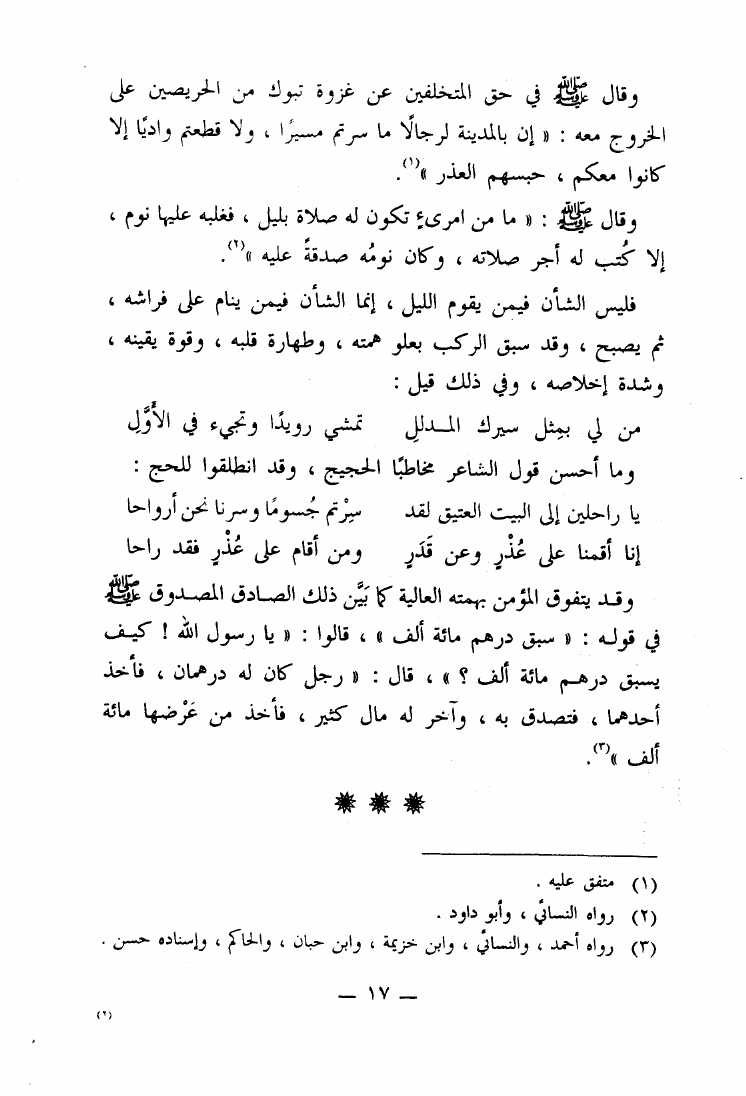 وقال ﷺ في حق المتخلفين عن غزوة تبوك من الحريصين على
الخروج معه : « إن بالمدينة لرجالًا ما سرتم مسيرًا ، ولا قطعتم واديًا إلا
كانوا معكم ، حبسهم العذر »(١).
وقال ﷺ : « ما من امرىءٍ تكون له صلاة بليل ، فغلبه عليها نوم ،
إلا كُتب له أجر صلاته ، وكان نومُه صدقةً عليه »(٢).
فليس الشأن فيمن يقوم الليل ، إنما الشأن فيمن ينام على فراشه ،
ثم يصبح ، وقد سبق الركب بعلو همته ، وطهارة قلبه ، وقوة يقينه ،
وشدة إخلاصه ، وفي ذلك قيل :
من لي بمِثل سيرك المدللِ تمشي رويدًا وتجيء في الأَوَّلِ
وما أحسن قول الشاعر مخاطبًا الحجيج ، وقد انطلقوا للحج :
يا راحلين إلى البيت العتيق لقد سِرْتم جُسومًا وسرنا نحن أرواحا
إنا أقمنا على عُذْرٍ وعن قَدَرٍ ومن أقام على عُذْرٍ فقد راحا
وقد يتفوق المؤمن بهمته العالية كما بَيَّن ذلك الصادق المصدوق ﷺ
في قوله : « سبق درهم مائة ألف » ، قالوا : « يا رسول الله ! كيف
يسبق درهم مائة ألف ؟ » ، قال : « رجل كان له درهمان ، فأخذ
أحدهما ، فتصدق به ، وآخر له مال كثير ، فأخذ من عَرْضها مائة
ألف »(٣).
(١) متفق عليه .
(٢) رواه النسائي ، وأبو داود .
(٣) رواه أحمد ، والنسائي ، وابن خزيمة ، وابن حبان ، والحاكم ، وإسناده حسن .
— ١٧ —
(٢)